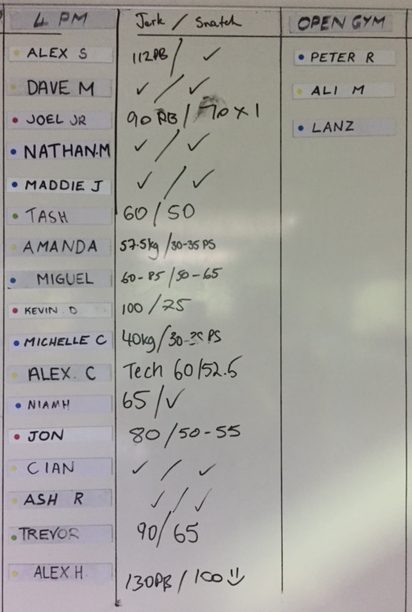 4 PM Jerk / Snatch OPEN GYM
ALEX S 112PB / ✓ PETER R
DAVE M ✓ / ✓ ALI M
JOEL JR 90 PB / 70 x 1 LANZ
NATHAN.M ✓ / ✓
MADDIE J ✓ / ✓
TASH 60 / 50
AMANDA 57.5kg / 30-35 PS
MIGUEL 60-85 / 50-65
KEVIN D 100 / 75
MICHELLE C 40kg / PS
ALEX C Tech 60 / 52.5
NIAMH 65 / ✓
JON 80 / 50-55
CIAN ✓ / ✓
ASH R ✓ / ✓
TREVOR 90 / 65
ALEX H 130PB / 100